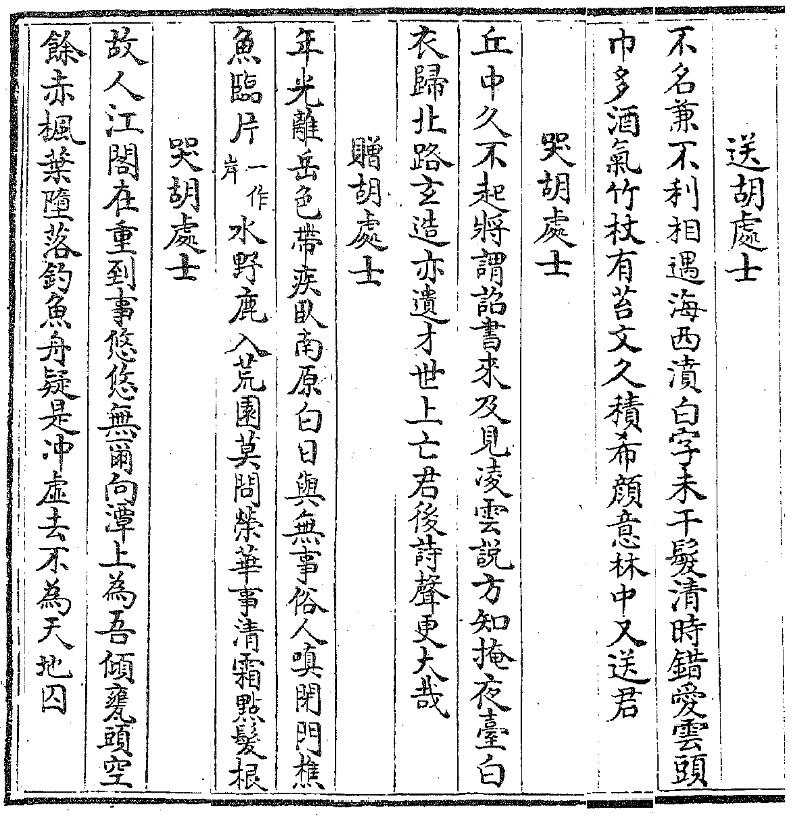 送胡處士
不名兼不利相遇海西濆白字未干髮清時錯愛雲頭
巾多酒氣竹杖有苔文久積希顏意林中又送君
哭胡處士
丘中久不起將謂詔書來及見凌雲說方知掩夜臺白
衣歸北路玄造亦遺才世上亡君後詩聲更大哉
贈胡處士
年光離岳色帶疾臥南原白日與無事俗人嗔閉門樵
魚臨片一作岸水野鹿入荒園莫問榮華事清霜點髮根
哭胡處士
故人江閣在重到事悠悠無爾向潭上為吾傾甕頭空
餘赤楓葉墮落釣魚舟疑是冲虛去不為天地囚